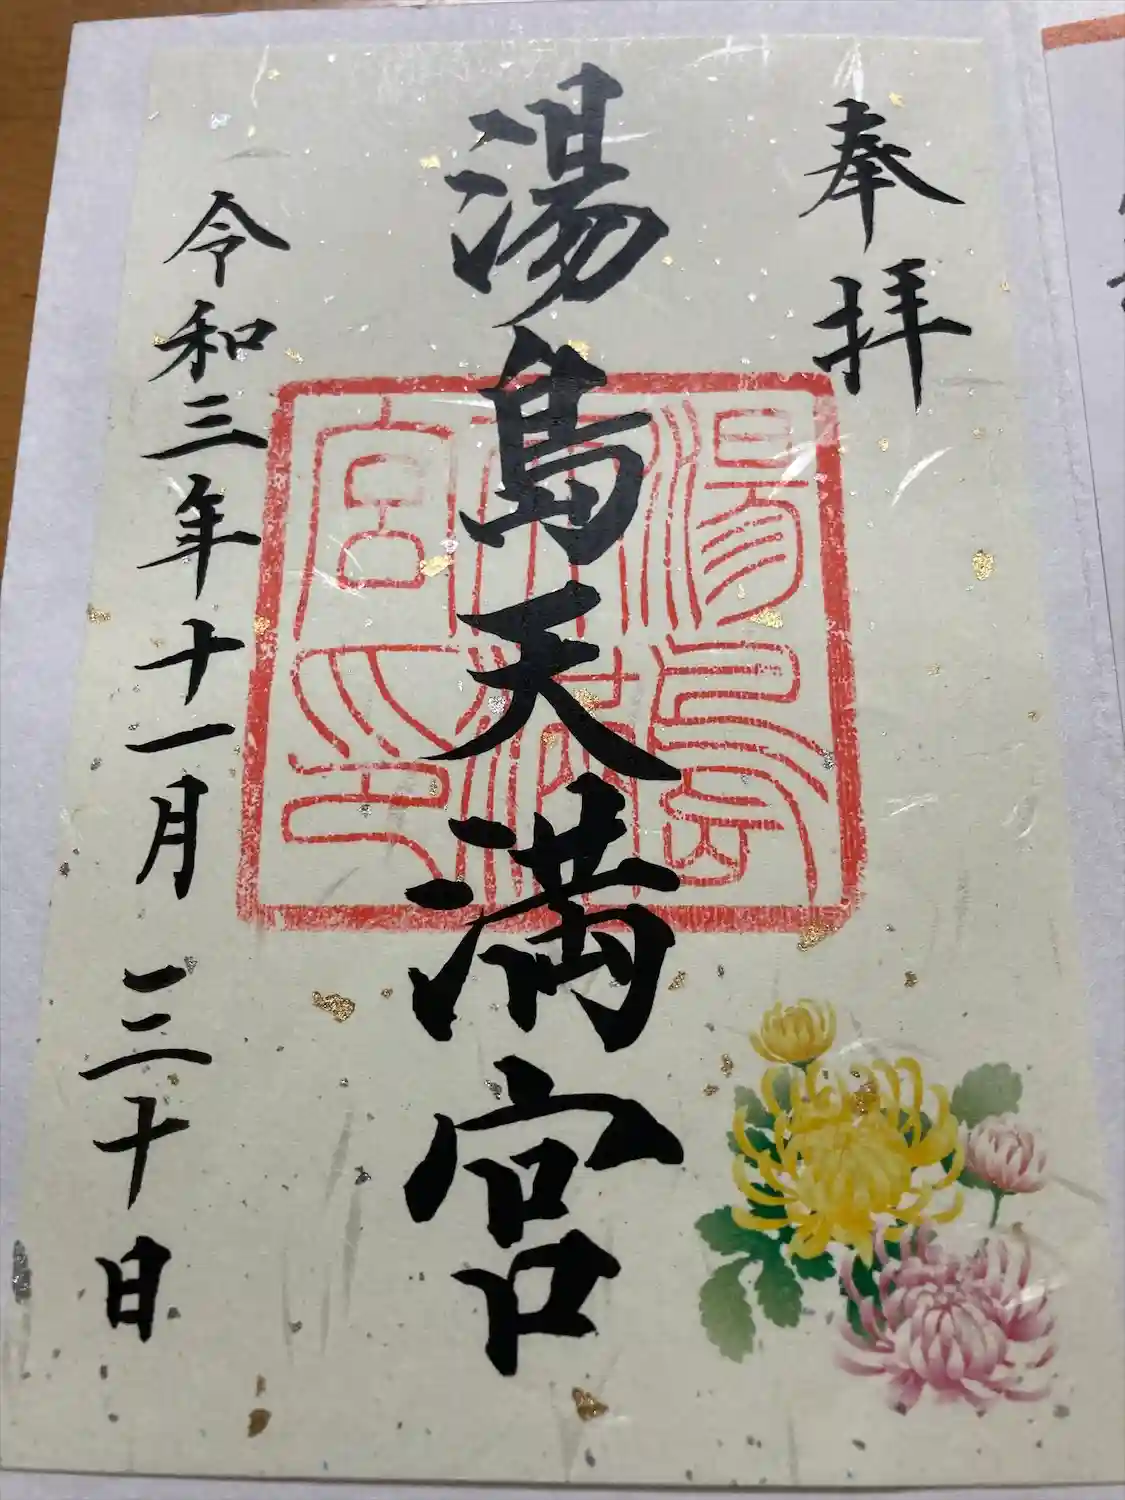 奉拝
湯島天満宮
令和三年十一月三十日
湯島
天満
宮印